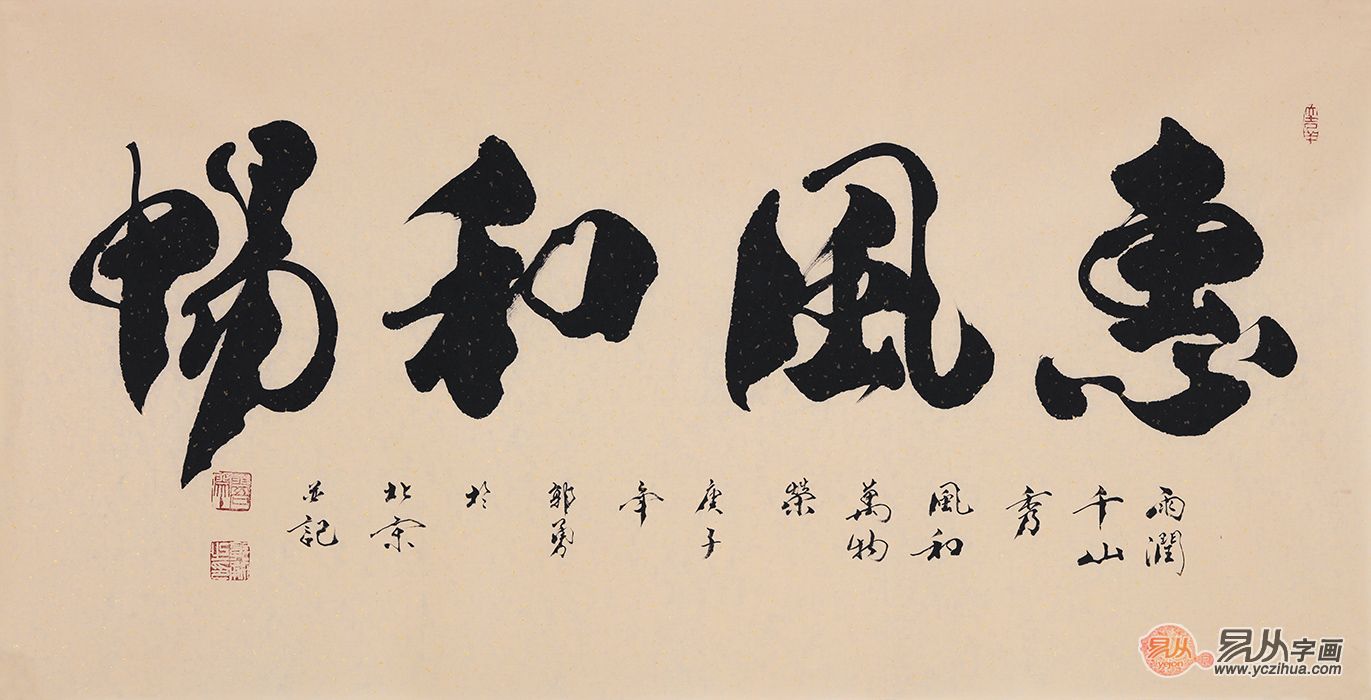 惠風和暢
雨潤
千山
秀
風和
萬物
榮
庚子
年
郭勇
於
北京
並記
易从
易从字画
www.yczihua.com